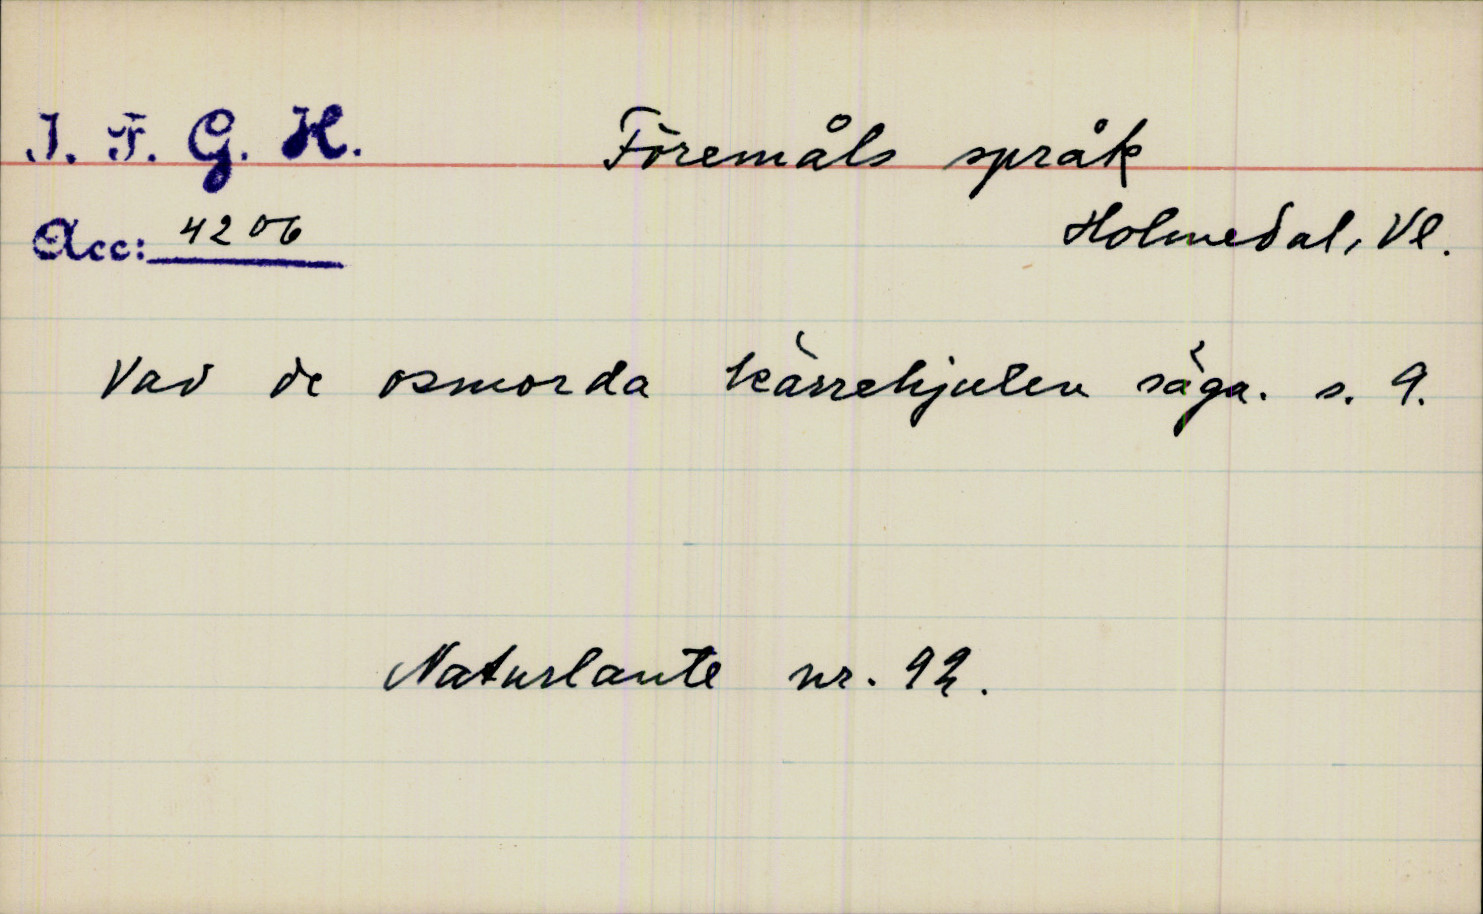 I. F. G. H. Föremåls språk
Acc: 4206 Holmedal, Vl.
Vad de osmorda kärrehjulen säga. s. 9.
Naturlaute nr. 92.